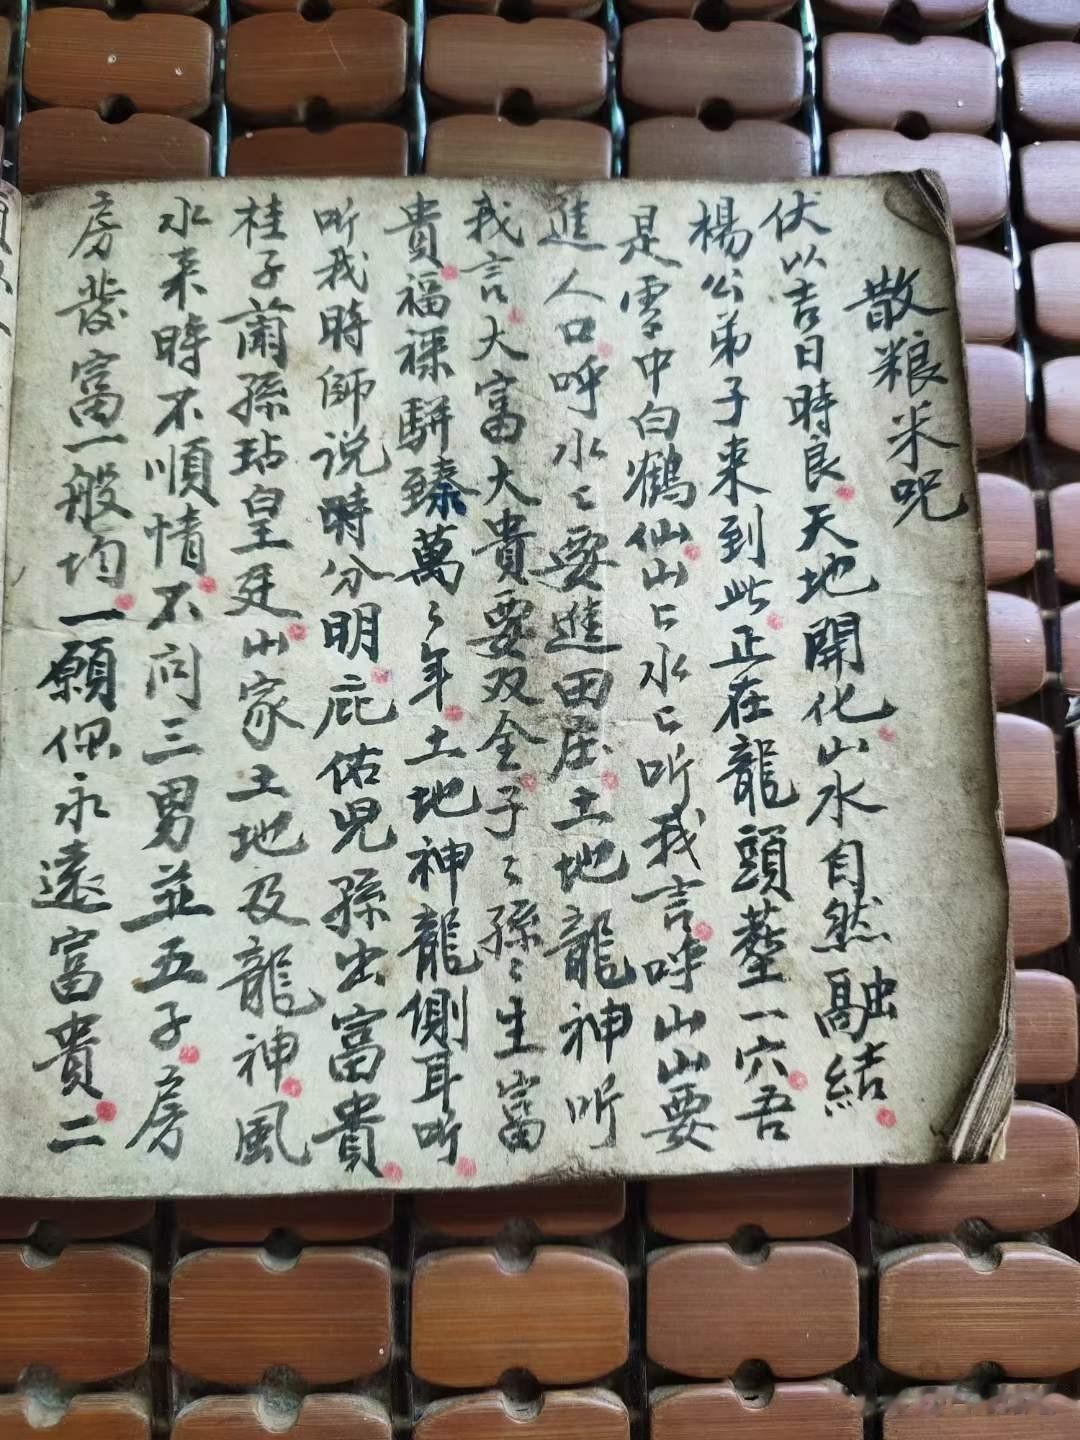 散粮米呪
伏以吉日時良天地開化山水自然融結
楊公弟子来到此正在龍頭塟一穴吾
是雲中白鶴仙山ヒ水ヒ听我言呼山山要
進人口呼水〻要進田庄土地龍神听
我言大富大貴要双全子〻孫〻生富
貴福禄駢臻萬〻年土地神龍側耳听
听我時師说時分明庇佑児孫出富貴
桂子蘭孫玷皇廷山家土地及龍神風
水来時不順情不问三男並五子房
房發富一般均一願保永遠富貴二